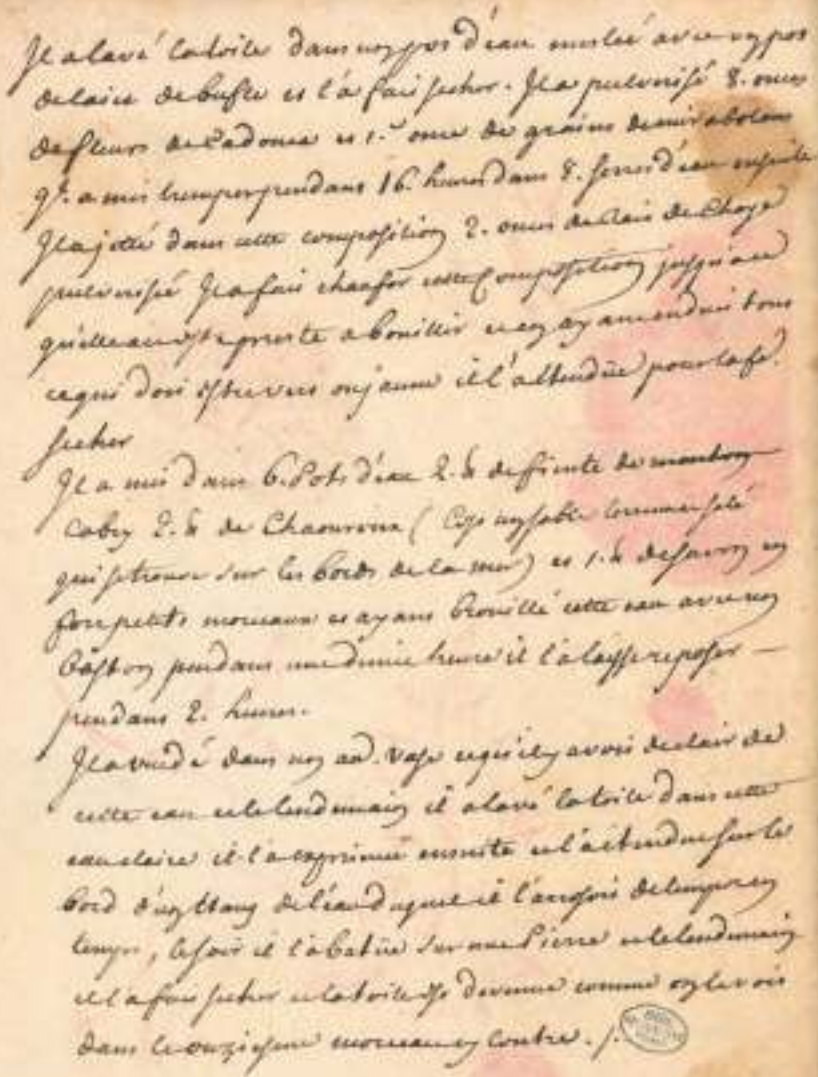 Il a lavé la toile dans un pot d'eau meslée avec un pot
de laict de bufle et l'a fait secher. Il a pulverisé 8. onces
de fleurs de Cadouca et 1. once de grains de mirabolans
qu'l a mis tremper pendant 16. heures dans 8. serres d'eau ensuite
Il a jetté dans cette composition 2. onces de
pulverisé Il a fait chaufer cette Composition jusqu'au
qu'elle aut esté preste a bouillir et en ayant enduit tout
ce qui doit estre vert ou jaune il l'a estendüe pour la fe.
secher
Il a mis dans 6. Pots d'eau 2. lb de fiente de mouton
Cabry 2. lb de Chaouroux ( C'est un sable comme salé
qui se trouve sur les bords de la mer) et 1. lb de savon en
fort petits morceaux et ayant brouillé cette eau avec un
baston pendant une demie heure il l'a laissé reposer —
pendant 2. heures.
Il a vuidé dans un au. vase ce qu'il y avoit de clair de
cette eau et le lendemain il a lavé la toile dans cette
eau claire il l'a exprimée ensuite et l'a étendue sur le
bord d'un Etang de l'eau duquel il l'arrosoit de temps en
temps, le soir il l'a batüe sur une Pierre et le lendemain
il l'a fait secher et la toile est devenue comme on le voit
dans le onziesme morceau cy contre. /.